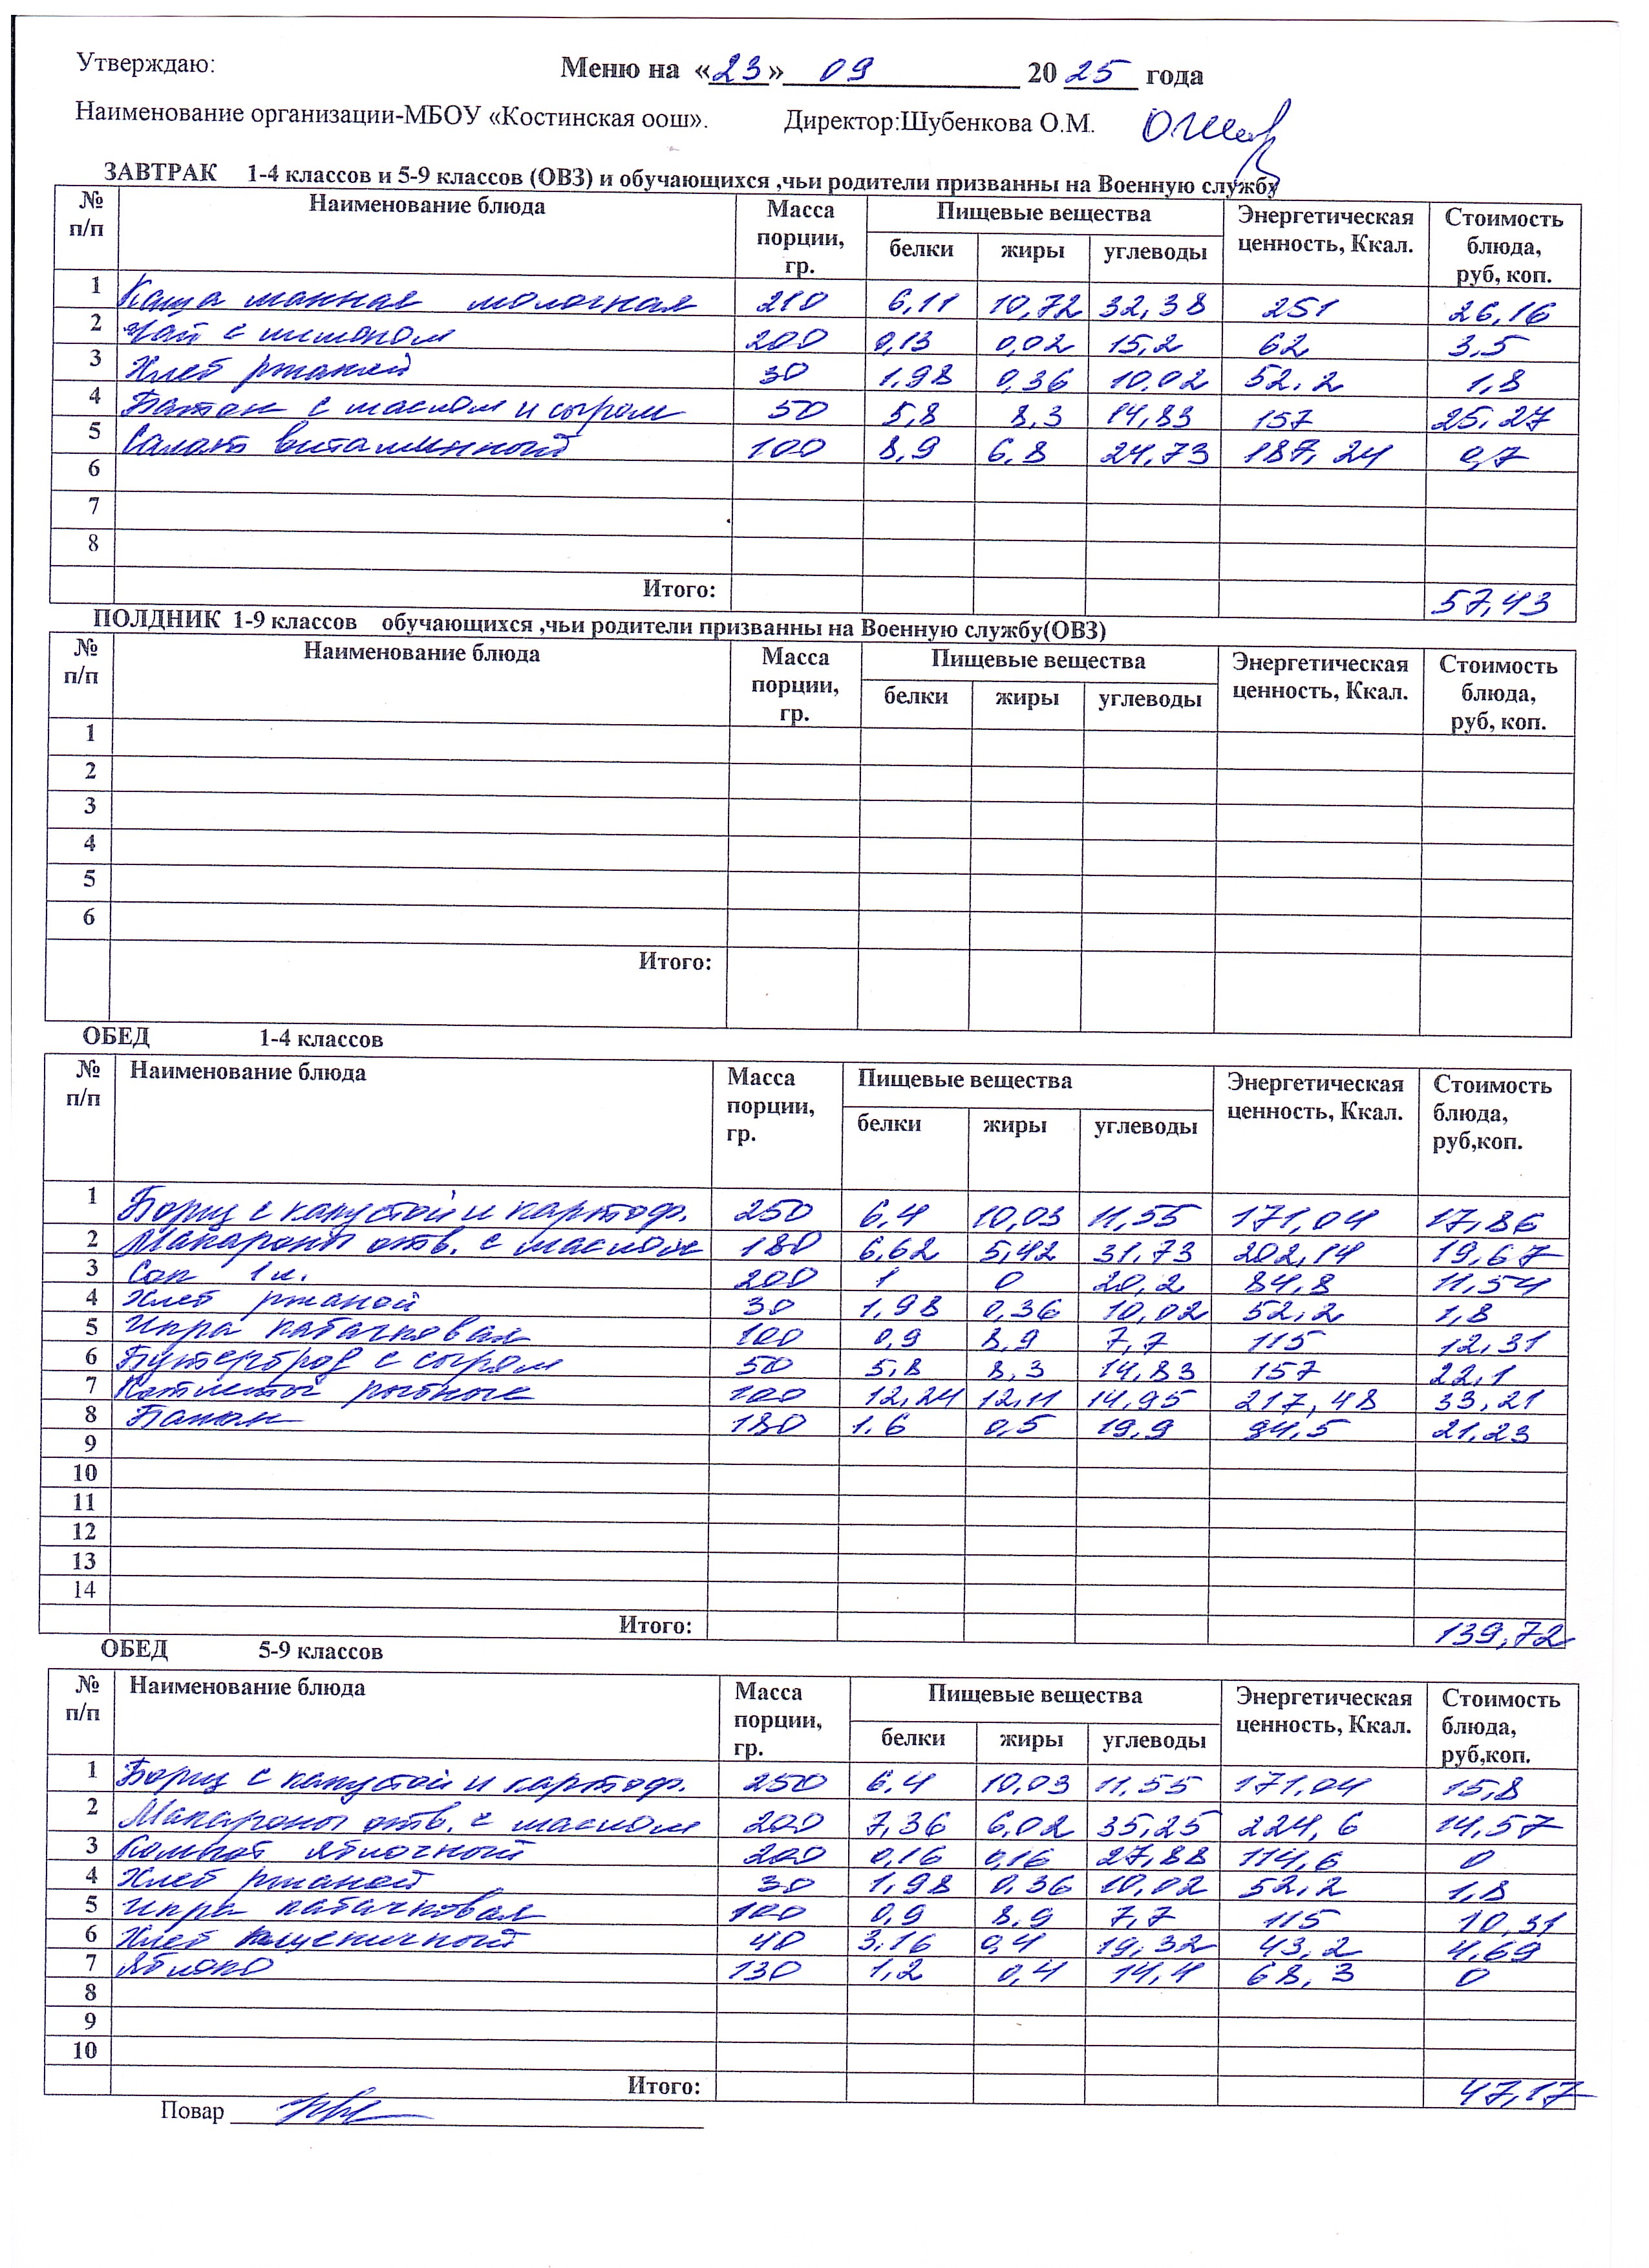 Утверждаю: Меню на «23» 09 2025 года
Наименование организации-МБОУ «Костинская оош». Директор:Шубенкова О.М.
ЗАВТРАК 1-4 классов и 5-9 классов (ОВЗ) и обучающихся ,чьи родители призванны на Военную службу
№ п/п Наименование блюда Масса порции, гр. Пищевые вещества Энергетическая ценность, Ккал. Стоимость блюда, руб, коп.
белки жиры углеводы
1 Каша манная молочная 210 6,11 10,72 32,38 251 26,16
2 Чай с лимоном 200 0,13 0,02 15,2 62 3,5
3 Хлеб ржаной 30 1,98 0,36 10,02 52,2 1,8
4 Батон с маслом и сыром 50 5,8 8,3 14,83 157 25,27
5 Салат витаминный 100 8,9 6,8 24,73 187,24 0,7
6
7
8
Итого: 57,43
ПОЛДНИК 1-9 классов обучающихся ,чьи родители призванны на Военную службу(ОВЗ)
№ п/п Наименование блюда Масса порции, гр. Пищевые вещества Энергетическая ценность, Ккал. Стоимость блюда, руб, коп.
белки жиры углеводы
1
2
3
4
5
6
Итого:
ОБЕД 1-4 классов
№ п/п Наименование блюда Масса порции, гр. Пищевые вещества Энергетическая ценность, Ккал. Стоимость блюда, руб,коп.
белки жиры углеводы
1 Борщ с капустой и картоф. 250 6,4 10,03 11,55 171,04 17,86
2 Макароны отв. с маслом 180 6,62 5,42 31,73 202,14 19,67
3 Сок 1 и. 200 1 0 20,2 84,8 11,54
4 Хлеб ржаной 30 1,98 0,36 10,02 52,2 1,8
5 Икра кабачковая 100 0,9 8,9 7,7 115 12,31
6 Бутерброд с сыром 50 5,8 8,3 14,83 157 22,1
7 Котлеты рыбные 100 12,24 12,11 14,95 217,48 33,21
8 Банан 180 1.6 0,5 19,9 94,5 21,23
9
10
11
12
13
14
Итого: 139,72
ОБЕД 5-9 классов
№ п/п Наименование блюда Масса порции, гр. Пищевые вещества Энергетическая ценность, Ккал. Стоимость блюда, руб,коп.
белки жиры углеводы
1 Борщ с капустой и картоф. 250 6,4 10,03 11,55 171,04 15,8
2 Макароны отв. с маслом 200 7,36 6,02 35,25 224,6 14,57
3 Компот яблочный 200 0,16 0,16 27,88 114,6 0
4 Хлеб ржаной 30 1,98 0,36 10,02 52,2 1,8
5 Икра кабачковая 100 0,9 8,9 7,7 115 10,31
6 Хлеб пшеничный 40 3,16 0,4 19,32 43,2 4,69
7 Яблоко 130 1,2 0,4 14,4 68,3 0
8
9
10
Итого: 47,17
Повар